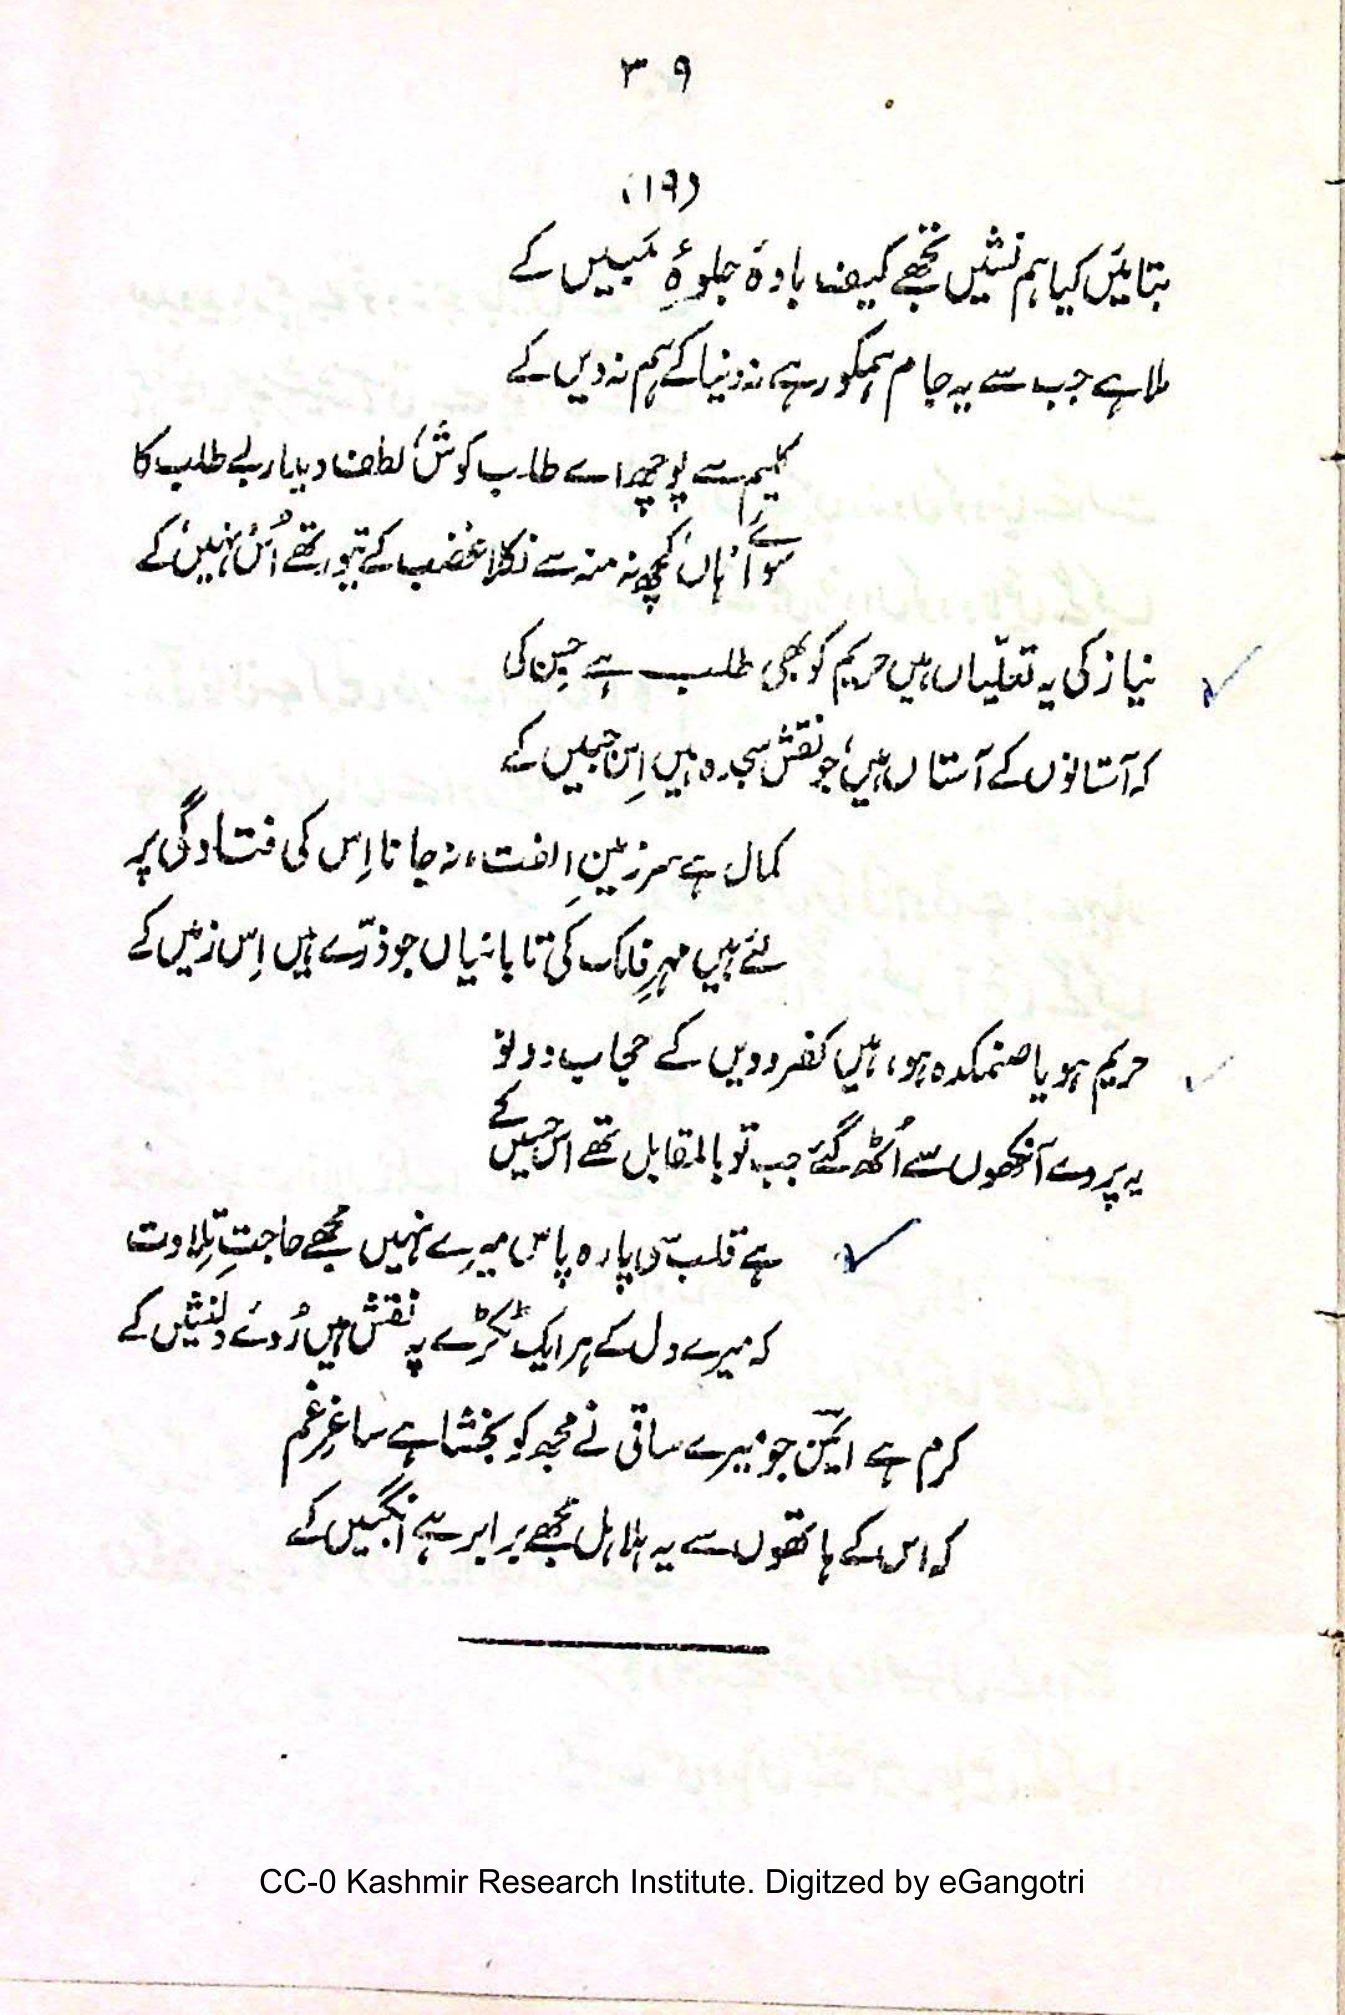 ۳۹
(۱۹)
بتائیں کیا ہم نشیں تجھے کیف بادۂ جلوۂ مبیں کے
ملا ہے جب سے یہ جام ہمکو رہے نہ دنیا کے ہم نہ دیں کے
کلیم سے پوچھ اے طلب کوش، لطف دیدار بے طلب کا
سوائے ’ہاں‘ کچھ نہ منہ سے نکلا غضب کے تیور تھے اُس ’نہیں‘ کے
نیاز کی یہ تعلّیاں ہیں حریم کو بھی طلب ہے جس کی
کہ آستانوں کے آستاں ہیں، جو نقش سجدہ ہیں اِس جبیں کے
کمال ہے سرزمینِ الفت، نہ جانا اِس کی فتادگی پر
لئے ہیں مہرِ فلک کی تابانیاں جو ذرّے ہیں اِس زمیں کے
حریم ہو یا صنمکدہ ہو، ہیں کفر و دیں کے حجاب دو تو
یہ پردے آنکھوں سے اُٹھ گئے جب تو بالمقابل تھے اس حسیں کے
ہے قلب سی پارہ پاس میرے نہیں مجھے حاجتِ تلاوت
کہ میرے دل کے ہر ایک ٹکڑے پہ نقش ہیں رُوئے دلنشیں کے
کرم ہے ایمنؔ جو میرے ساقی نے مجھ کو بخشا ہے ساغرِ غم
کہ اس کے ہاتھوں سے یہ ہلاہل مجھے برابر ہے انگبیں کے
CC-0 Kashmir Research Institute. Digitzed by eGangotri